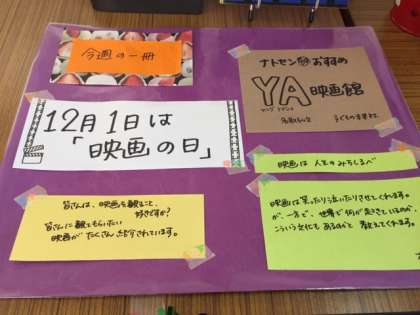 今週の一冊
ナトセン㊙おすすめ
YA映画館
12月1日は
「映画の日」
映画は人生のみちしるべ
皆さんは、映画を観ること、
好きですか？
皆さんに観てもらいたい
映画がたくさん紹介されています。
映画は笑ったり泣いたりさせてくれます。
が、一方で、世界で何が起きているのか、
こういう文化もあるのかと教えてくれます。